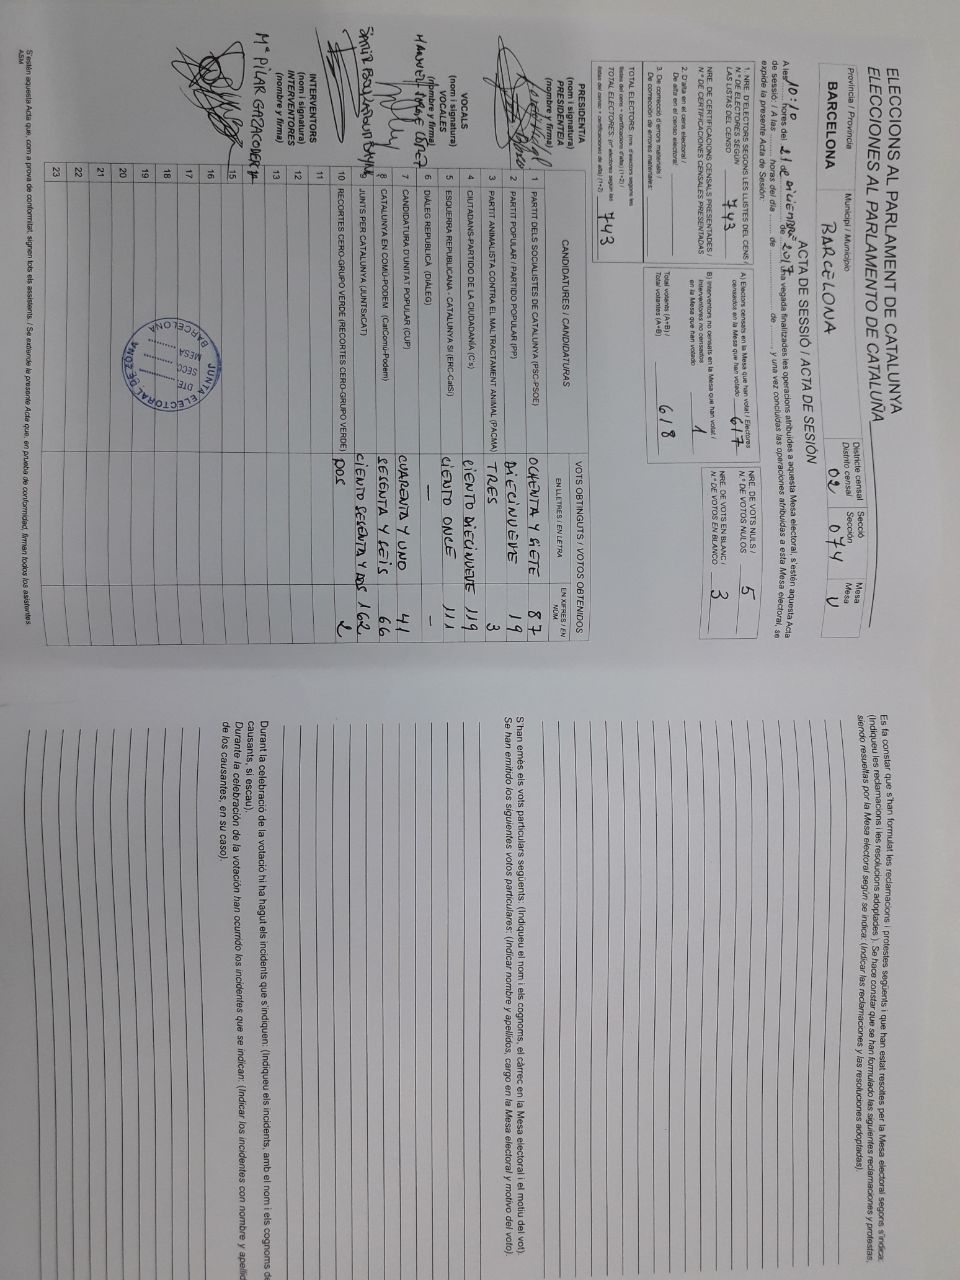 ELECCIONS AL PARLAMENT DE CATALUNYA
ELECCIONES AL PARLAMENTO DE CATALUÑA
Província / Provincia
BARCELONA
Municipi / Municipio
BARCELONA
Districte censal
Distrito censal
02
Secció
Sección
074
Mesa
Mesa
U
ACTA DE SESSIÓ / ACTA DE SESIÓN
A les 10:10 hores del 21 de diciembre de 2017, una vegada finalitzades les operacions atribuïdes a aquesta Mesa electoral, s'estén aquesta Acta
de sessió: / A las ........ horas del día ........ de ........ de ........, y una vez concluidas las operaciones atribuidas a esta Mesa electoral, se
expide la presente Acta de Sesión:
1. NRE. D'ELECTORS SEGONS LES LLISTES DEL CENS /
N.º DE ELECTORES SEGÚN
LAS LISTAS DEL CENSO 743
NRE. DE CERTIFICACIONS CENSALS PRESENTADES /
N.º DE CERTIFICACIONES CENSALES PRESENTADAS
2. D'alta en el cens electoral /
De alta en el censo electoral:
3. De correcció d'errors materials /
De corrección de errores materiales:
TOTAL ELECTORS: (nre. d'electors segons les
llistes del cens + certificacions d'alta) (1+2) /
TOTAL ELECTORES: (nº electores según las
listas del censo + certificaciones de alta) (1+2) 743
A) Electors censats en la Mesa que han votat / Electores
censados en la Mesa que han votado 617
B) Interventors no censats en la Mesa que han votat /
Interventores no censados
en la Mesa que han votado 1
Total votants (A+B) /
Total votantes (A+B) 618
NRE. DE VOTS NULS /
N.º DE VOTOS NULOS 5
NRE. DE VOTS EN BLANC /
N.º DE VOTOS EN BLANCO 3
CANDIDATURES / CANDIDATURAS
VOTS OBTINGUTS / VOTOS OBTENIDOS
EN LLETRES / EN LETRA
EN XIFRES / EN NÚM.
1 PARTIT DELS SOCIALISTES DE CATALUNYA (PSC-PSOE) OCHENTA Y SIETE 87
2 PARTIT POPULAR / PARTIDO POPULAR (PP) DIECINUEVE 19
3 PARTIT ANIMALISTA CONTRA EL MALTRACTAMENT ANIMAL (PACMA) TRES 3
4 CIUTADANS-PARTIDO DE LA CIUDADANÍA (C's) CIENTO DIECINUEVE 119
5 ESQUERRA REPUBLICANA - CATALUNYA SÍ (ERC-CatSí) CIENTO ONCE 111
6 DIÀLEG REPUBLICÀ (DIÀLEG) — —
7 CANDIDATURA D'UNITAT POPULAR (CUP) CUARENTA Y UNO 41
8 CATALUNYA EN COMÚ-PODEM (CatComú-Podem) SESENTA Y SEIS 66
9 JUNTS PER CATALUNYA (JUNTSxCAT) CIENTO SESENTA Y DOS 162
10 RECORTES CERO-GRUPO VERDE (RECORTES CERO-GRUPO VERDE) DOS 2
11
12
13
14
15
16
17
18
19
20
21
22
23
PRESIDENT/A
(nom i signatura)
PRESIDENTE/A
(nombre y firma)
VOCALS
(nom i signatura)
VOCALES
(nombre y firma)
MANUEL
INTERVENTORS
(nom i signatura)
INTERVENTORES
(nombre y firma)
Mª PILAR
JUNTA ELECTORAL DE ZONA
DTE.
SECC.
MESA
BARCELONA
S'estén aquesta Acta que, com a prova de conformitat, signen tots els assistents. / Se extiende la presente Acta que, en prueba de conformidad, firman todos los asistentes.
ASM
Es fa constar que s'han formulat les reclamacions i protestes següents i que han estat resoltes per la Mesa electoral segons s'indica:
(Indiqueu les reclamacions i les resolucions adoptades ). Se hace constar que se han formulado las siguientes reclamaciones y protestas,
siendo resueltas por la Mesa electoral según se indica: (Indicar las reclamaciones y las resoluciones adoptadas).
S'han emès els vots particulars següents: (Indiqueu el nom i els cognoms, el càrrec en la Mesa electoral i el motiu del vot).
Se han emitido los siguientes votos particulares: (Indicar nombre y apellidos, cargo en la Mesa electoral y motivo del voto).
Durant la celebració de la votació hi ha hagut els incidents que s'indiquen: (Indiqueu els incidents, amb el nom i els cognoms de
causants, si escau).
Durante la celebración de la votación han ocurrido los incidentes que se indican: (Indicar los incidentes con nombre y apellid
de los causantes, en su caso).